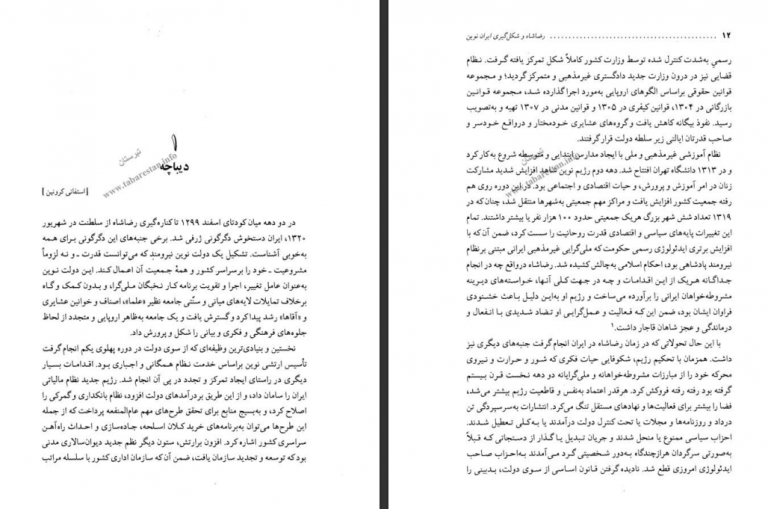 ۱
دیباچه
[استفانی کرونین]
در دو دهه میان کودتای اسفند ۱۲۹۹ تا کناره‌گیری رضاشاه از سلطنت در شهریور
۱۳۲۰، ایران دستخوش دگرگونی ژرفی شد. برخی جنبه‌های این دگرگونی برای همه
به‌خوبی آشناست. تشکیل یک دولت نوین نیرومند که می‌توانست قدرت ـ و نه لزوماً
مشروعیت ـ خود را برسراسر کشور و همهٔ جمعیت آن اعمال کند. این دولت نوین
به‌عنوان عامل تغییر، اجرا و تقویت برنامه کار نخبگان ملی‌گرا، و بدون کمک و گاه
برخلاف تمایلات لایه‌های میانی و سنّتی جامعه نظیر «علما»، اصناف و خوانین عشایری
و «آقاها» رشد پیدا کرد و گسترش یافت و یک جامعه به‌ظاهر اروپایی و متجدد از لحاظ
جلوه‌های فرهنگی و فکری و بیانی را شکل و پرورش داد.
نخستین و بنیادی‌ترین وظیفه‌ای که از سوی دولت در دوره پهلوی یکم انجام گرفت
تأسیس ارتشی نوین براساس خدمت نظام همگانی و اجباری بود. اقدامات بسیار
دیگری در راستای ایجاد تمرکز و تجدد در پی آن انجام شد. رژیم جدید نظام مالیاتی
ایران را سامان داد، و از این طریق بردرآمدهای دولت افزود، نظام بانکداری و گمرکی را
اصلاح کرد، و به‌بسیج منابع برای تحقق طرح‌های مهم عام‌المنفعه پرداخت که از جمله
این طرح‌ها می‌توان به‌برنامه‌های خرید کلان اسلحه، جاده‌سازی و احداث راه‌آهن
سراسری کشور اشاره کرد. افزون برارتش، ستون دیگر نظم جدید دیوان‌سالاری مدنی
بود که توسعه و تجدید سازمان یافت، ضمن آن که سازمان اداری کشور با سلسله مراتب
۱۴ رضاشاه و شکل‌گیری ایران نوین
رسمی به‌شدت کنترل شده توسط وزارت کشور کاملاً شکل تمرکز یافته گرفت. نظام
قضایی نیز در درون وزارت جدید دادگستری غیرمذهبی و متمرکز گردید؛ و مجموعه
قوانین حقوقی براساس الگوهای اروپایی به‌مورد اجرا گذارده شد، مجموعه قوانین
بازرگانی در ۱۳۰۴، قوانین کیفری در ۱۳۰۵ و قوانین مدنی در ۱۳۰۷ تهیه و به‌تصویب
رسید. نفوذ بیگانه کاهش یافت و گروه‌های عشایری خودمختار و درواقع خودسر و
صاحب قدرتان ایالتی زیر سلطه دولت قرار گرفتند.
نظام آموزشی غیرمذهبی و ملی با ایجاد مدارس ابتدایی و متوسطه شروع به‌کار کرد
و در ۱۳۱۳ دانشگاه تهران افتتاح شد. دهه دوم رژیم نوین شاهد افزایش شدید مشارکت
زنان در امر آموزش و پرورش، و حیات اقتصادی و اجتماعی بود. در این دوره روی هم
رفته جمعیت کشور افزایش یافت و مراکز مهم جمعیتی به‌شهرها منتقل شد، چنان که در
۱۳۱۹ تعداد شش شهر بزرگ هریک جمعیتی حدود ۱۰۰ هزار نفر یا بیشتر داشتند. تمام
این تغییرات پایه‌های سیاسی و اقتصادی قدرت روحانیت را سست کرد، ضمن آن که با
افزایش برتری ایدئولوژی رسمی حکومت که ملی‌گرایی غیرمذهبی ایرانی مبتنی برنظام
نیرومند پادشاهی بود، احکام اسلامی به‌چالش کشیده شد. رضاشاه درواقع چه در انجام
جداگانه هریک از این اقدامات و چه در جهت کلی آنها، خواسته‌های دیرینه
مشروطه‌خواهان ایرانی را برآورده می‌ساخت و رژیم او به‌این دلیل باعث خشنودی
فراوان ایشان بود، ضمن این که فعالیت و عمل‌گرایی او تضاد شدیدی با انفعال و
درماندگی و عجز شاهان قاجار داشت.۱
با این حال تحولاتی که در زمان رضاشاه در ایران انجام گرفت جنبه‌های دیگری نیز
داشت. همزمان با تحکیم رژیم، شکوفایی حیات فکری که شور و حرارت و نیروی
محرکه خود را از مبارزات مشروطه‌خواهانه و ملی‌گرایانه دو دهه نخست قرن بیستم
گرفته بود رفته رفته فروکش کرد. هرقدر اعتماد به‌نفس و قاطعیت رژیم بیشتر می‌شد،
فضا را بیشتر برای فعالیت‌ها و نهادهای مستقل تنگ می‌کرد. انتشارات به‌سرسپردگی تن
درداد و روزنامه‌ها و مجلات یا تحت کنترل دولت درآمدند یا به‌کلی تعطیل شدند.
احزاب سیاسی ممنوع یا منحل شدند و جریان تبدیل یا گذار از دستجاتی که قبلاً
به‌صورتی سرگردان هرازچندگاه به‌دور شخصیتی گرد می‌آمدند به‌احزاب صاحب
ایدئولوژی امروزی قطع شد. نادیده گرفتن قانون اساسی از سوی دولت، بدبینی را
تبرستان
www.tabarestan.info
تبرستان
www.tabarestan.info